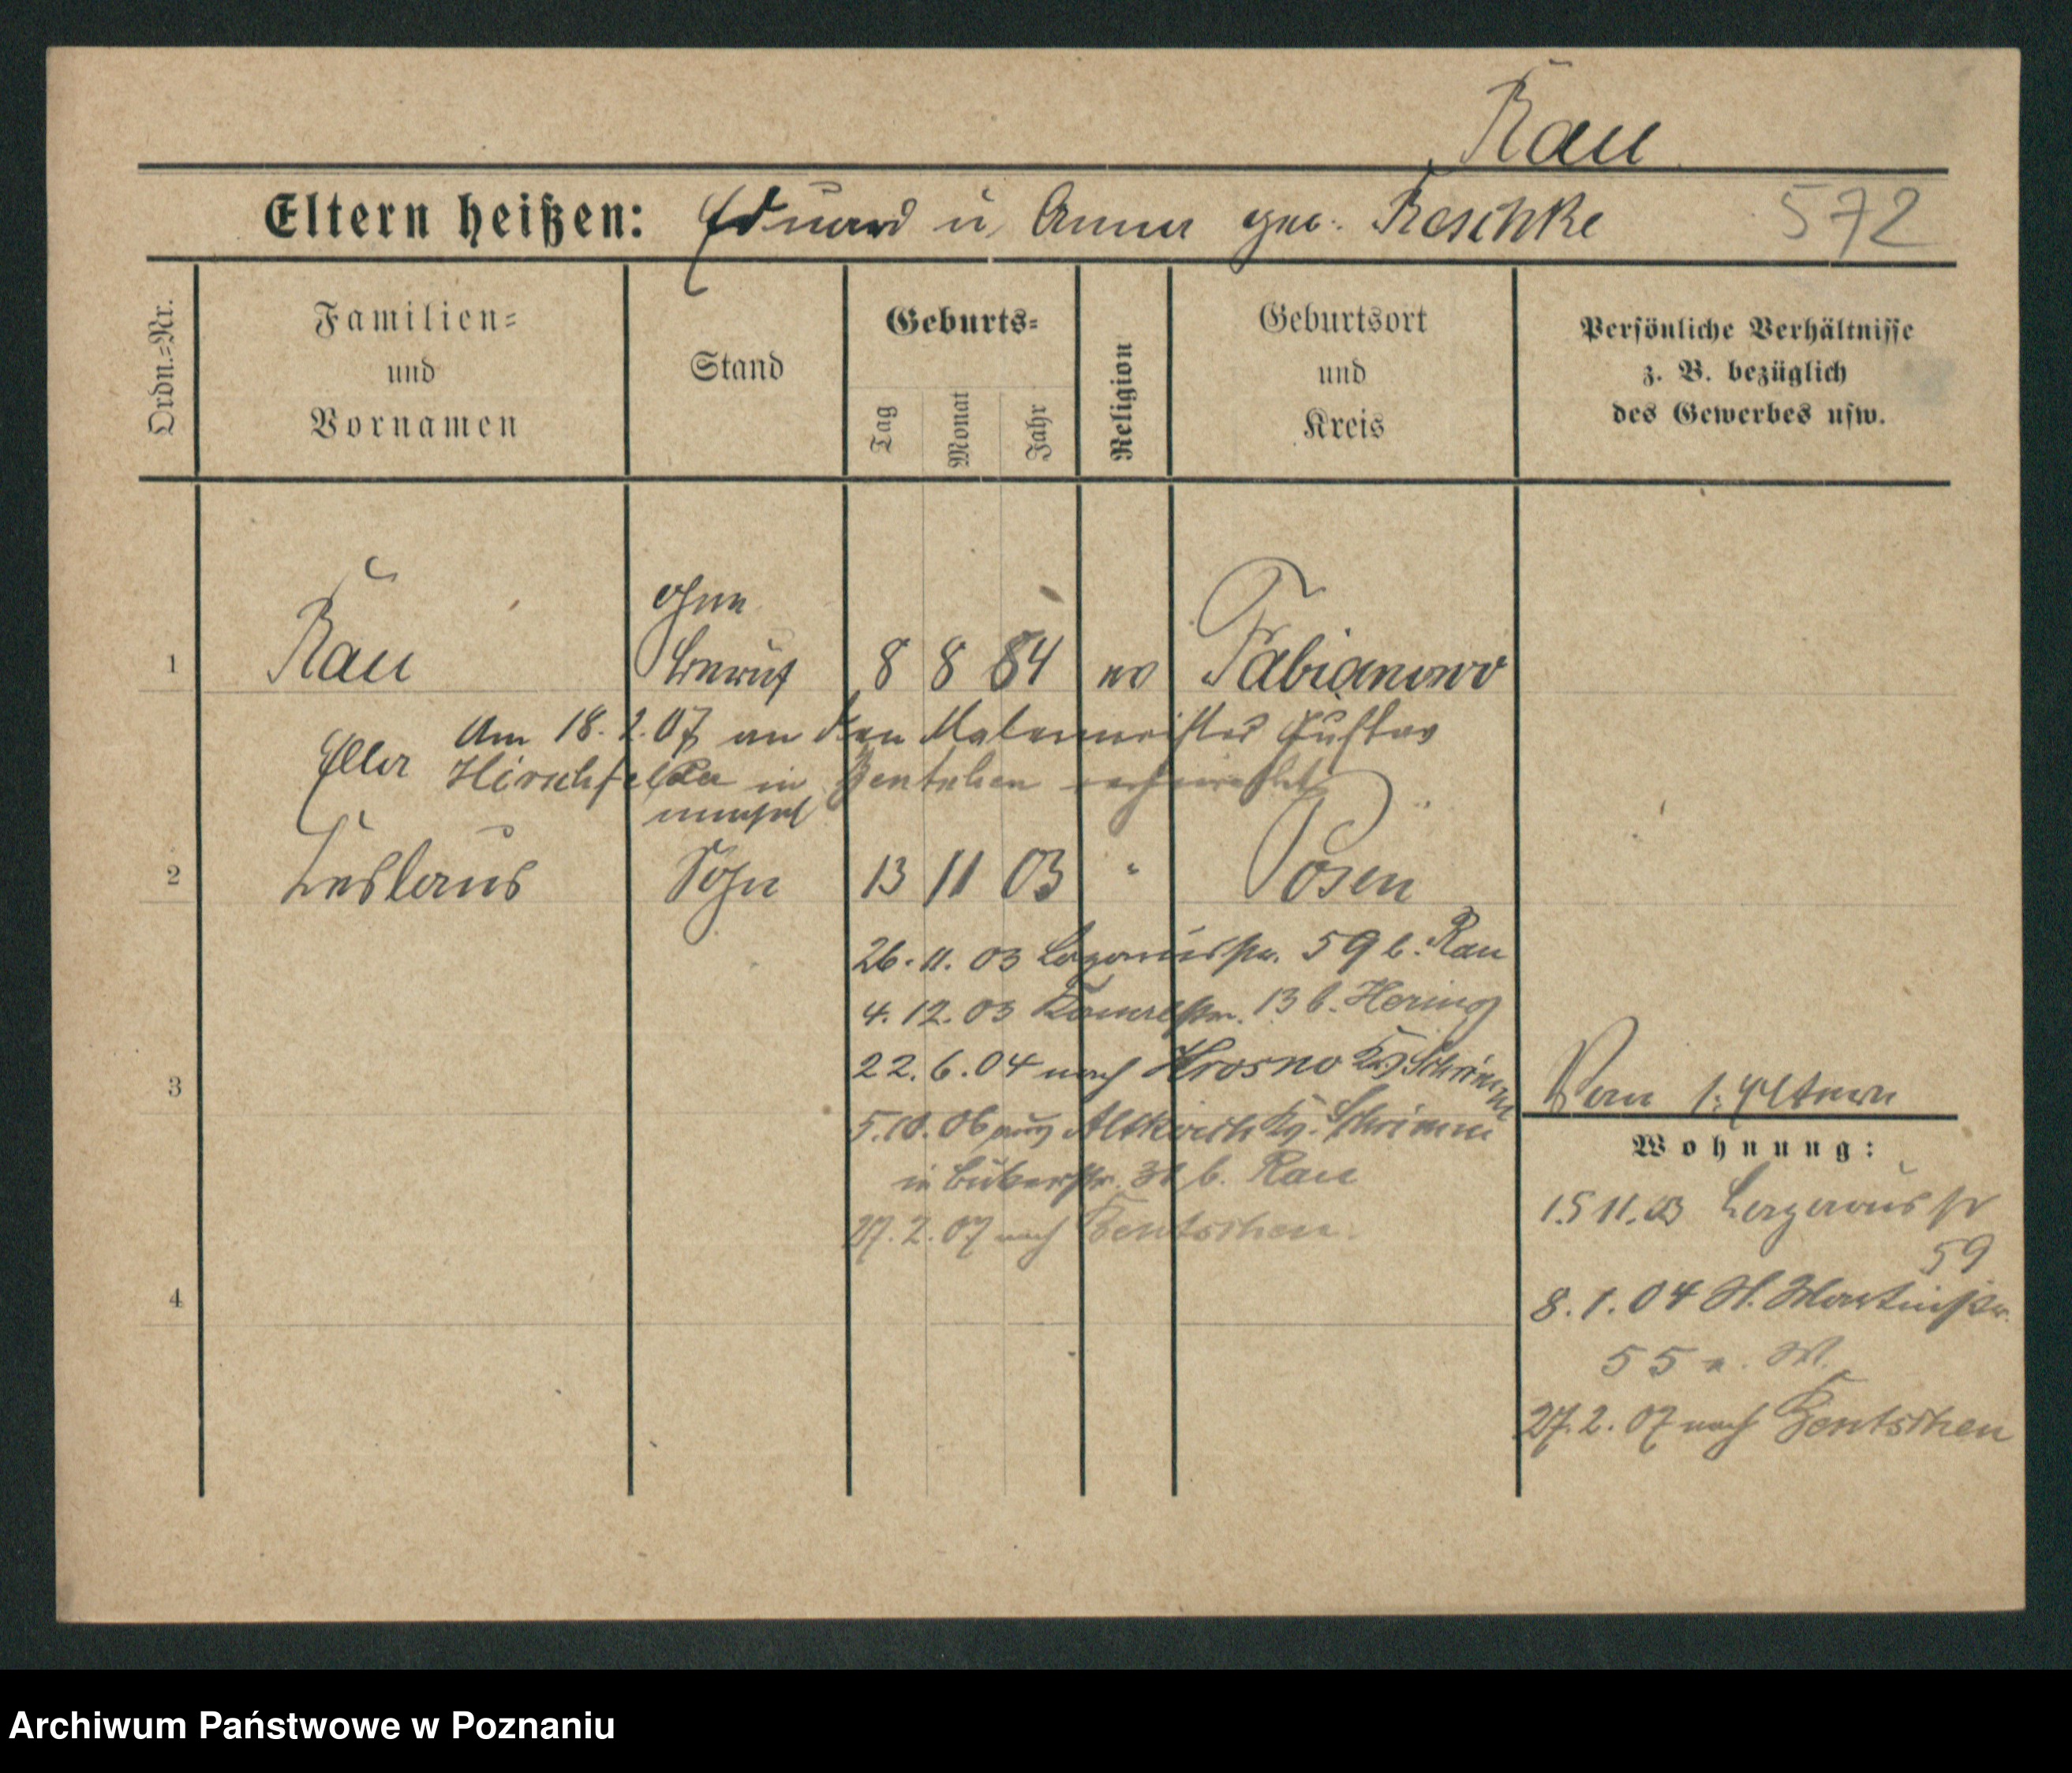 Rau
Eltern heißen: Eduard u. Anna geb. Reschke 572
Ordn.=Nr.
Familien=
und
Vornamen
Stand
Geburts=
Tag
Monat
Jahr
Religion
Geburtsort
und
Kreis
Persönliche Verhältnisse
z. B. bezüglich
des Gewerbes usw.
ohne
1 Rau Beruf 8 8 84 ev Fabianowo
Am 18. 2. 07 an den Malermeister Gustav
Ella Hirschfelder in Bentschen verheirathet
unehel
2 Ladislaus Sohn 13 11 03 " Posen
26. 11. 03 59 b. Rau
4. 12. 03 13 b. Hering
22. 6. 04 nach Krosno Kr. Schrimm
3
5. 10. 06 aus Altkirch Kr. Schrimm
in 31 b. Rau
27. 2. 07 nach Bentschen
4
Wohnung:
15 11. 03
59
8. 1. 04 St. Martinstr.
55 a. W.
27. 2. 07 nach Bentschen
Archiwum Państwowe w Poznaniu